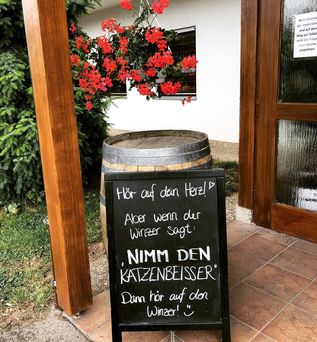 Hör auf dein Herz! ♡
Aber wenn der
Winzer sagt:
"NIMM DEN
KATZENBEISSER"
Dann hör auf den
Winzer! :)